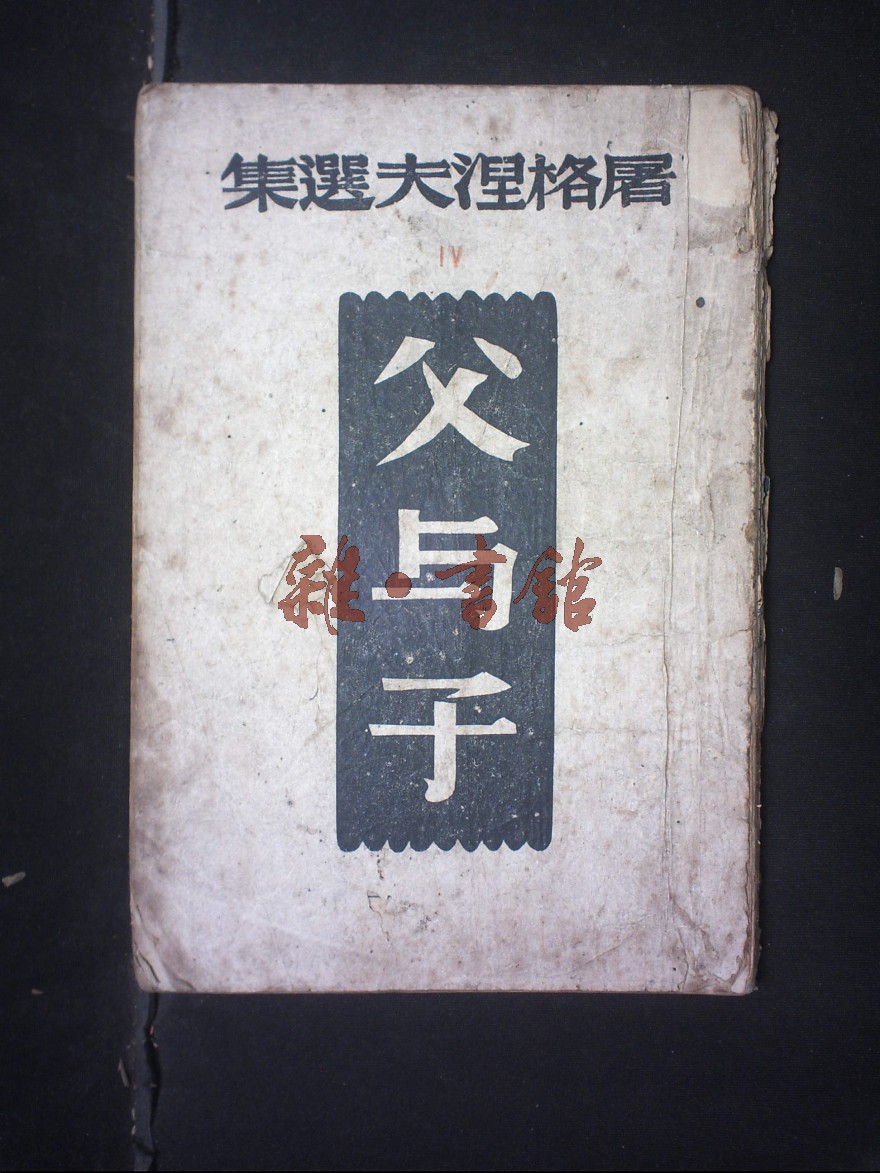 屠格涅夫選集
IV
父与子
雜·書館